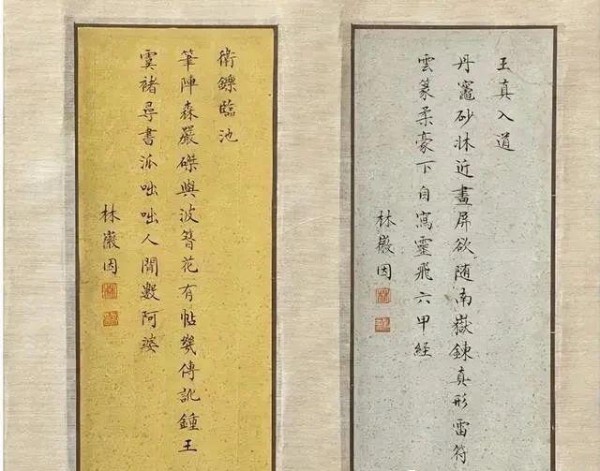 王真入道
丹竈砂牀近畫屏欲随南嶽鍊真形雷符
雲篆柔豪下自寫靈飛六甲經
林徽因
衛鑠臨池
筆陣森嚴磔與波簪花有帖幾傳訛鍾王
虞褚尋書派咄咄人間數阿婆
林徽因